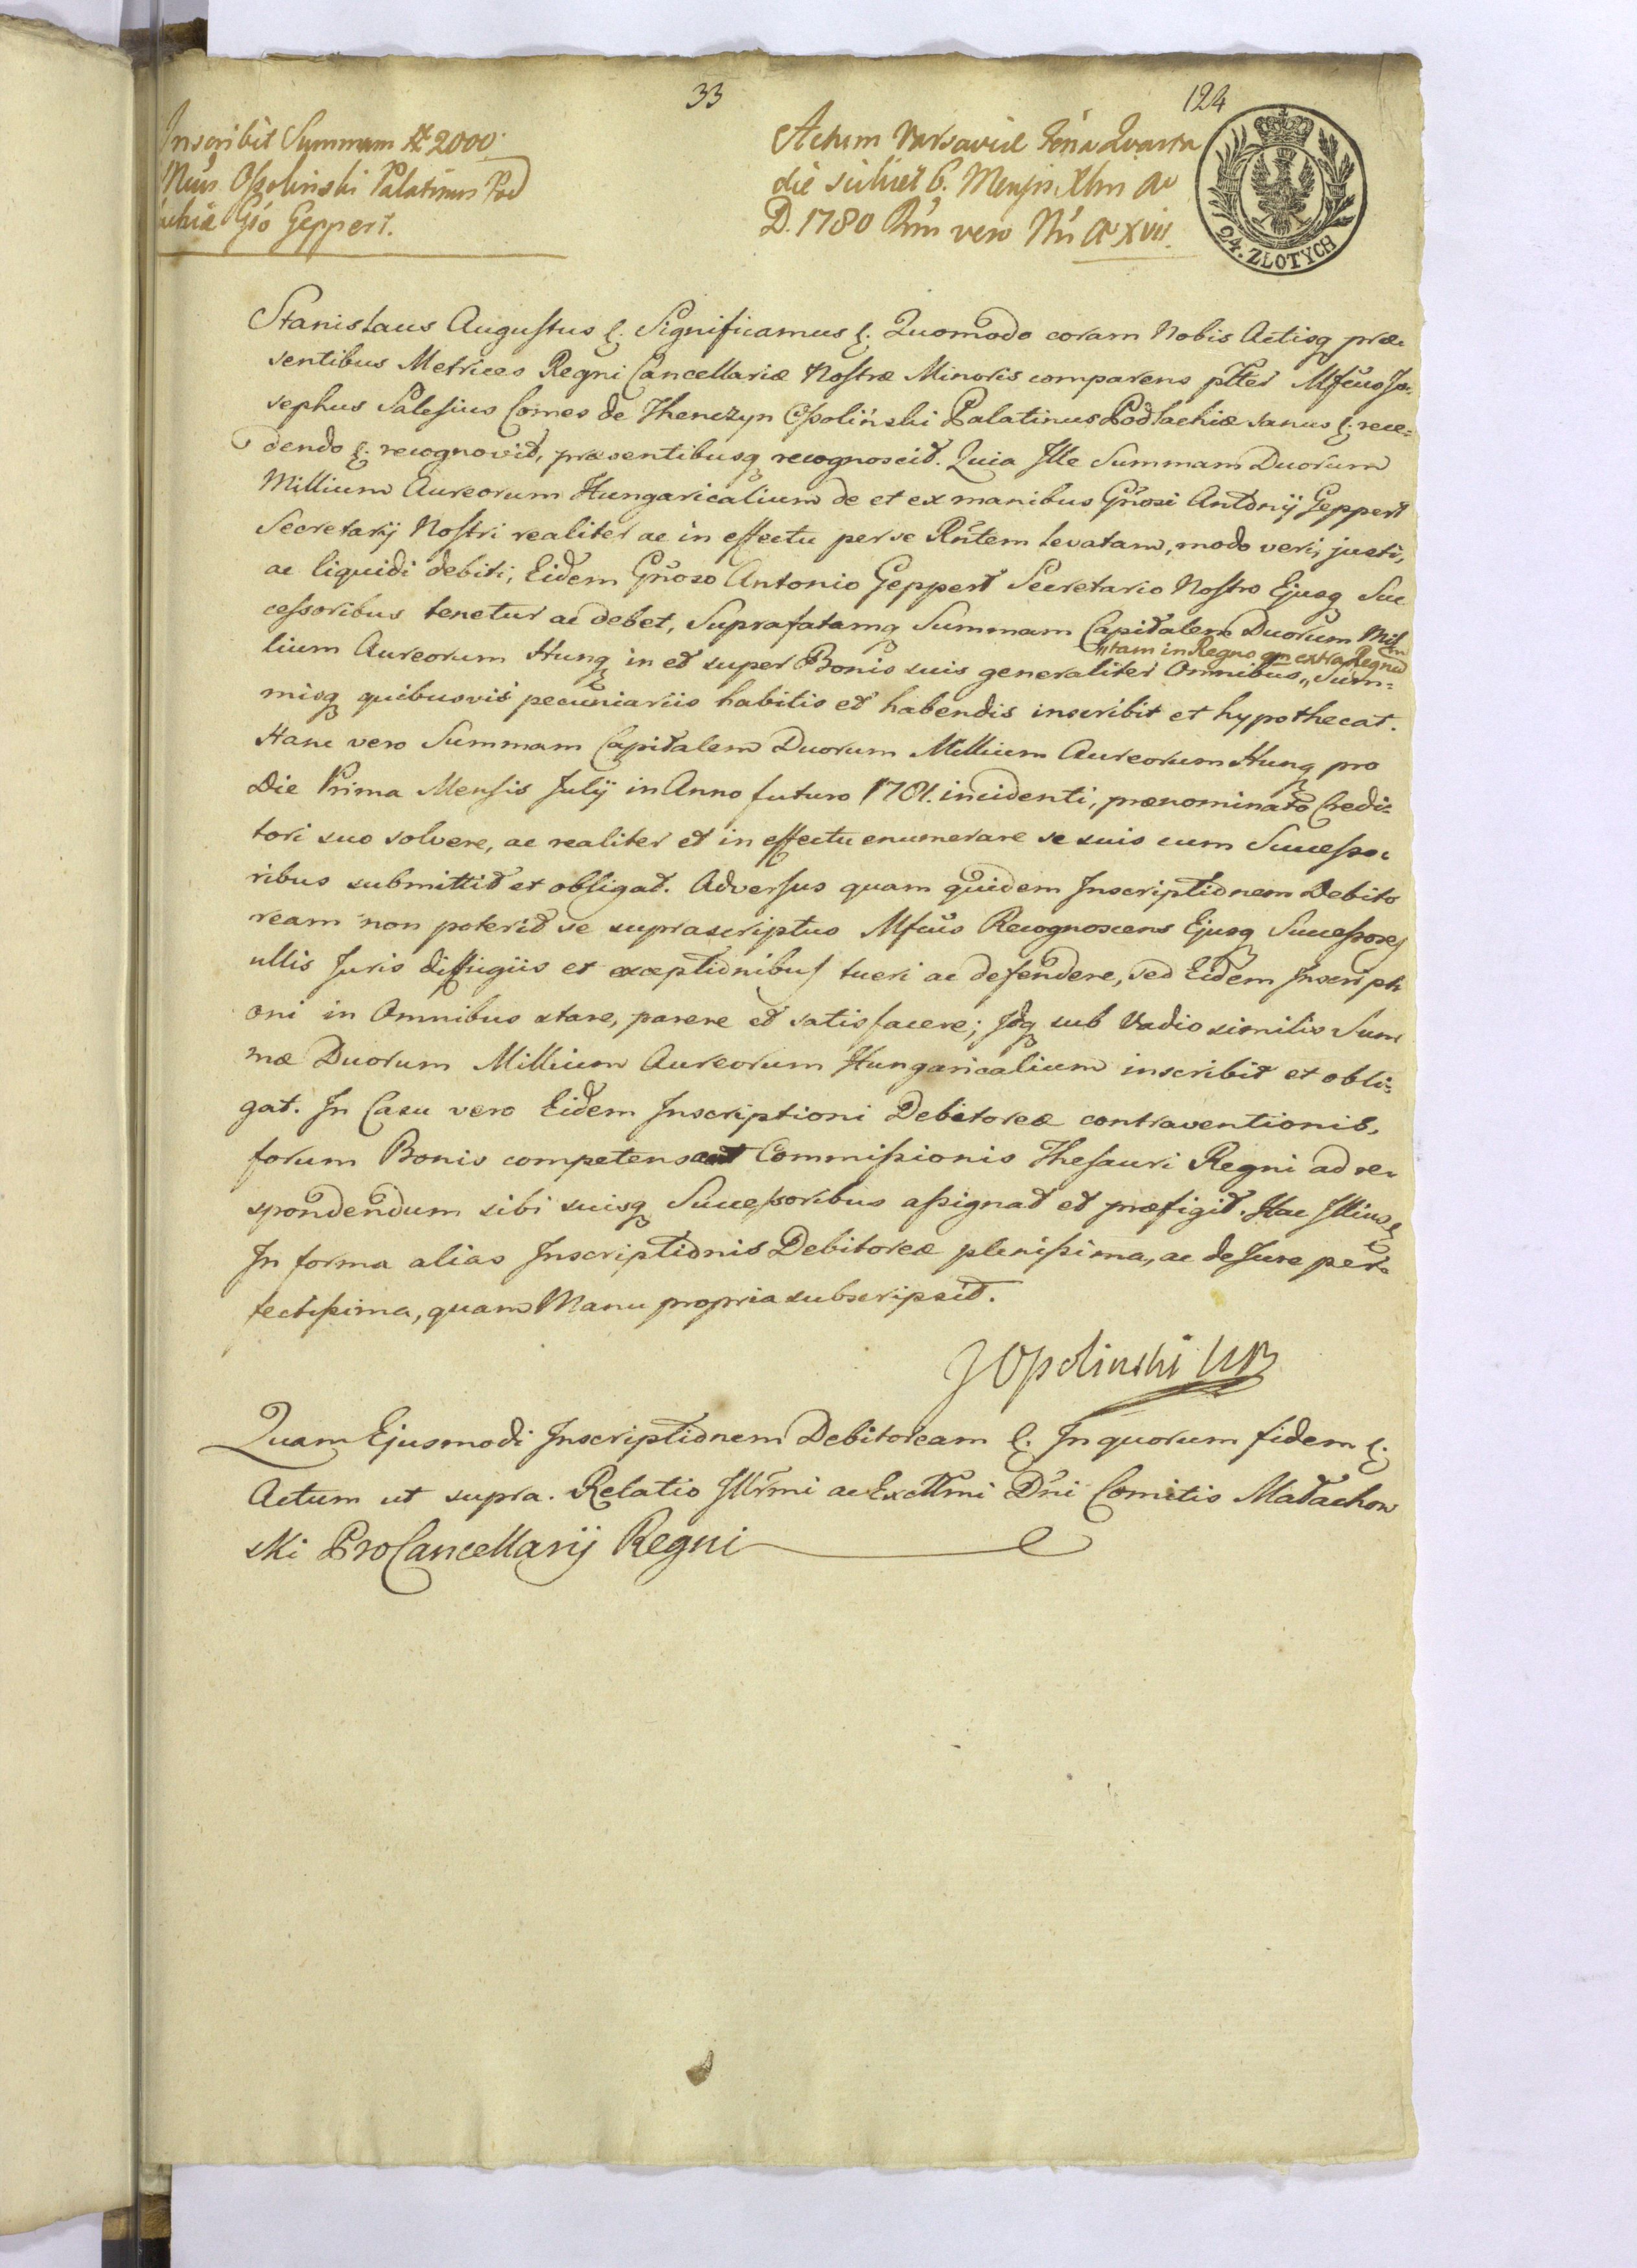 33
124
Inscribit Summam # 2000.
Mcus Ossolinski Palatinus Pod
lachiæ Gso Geppert.
Actum Varsaviæ Feria Quarta
die scilicet 6. Mensis Xbris Ao
D. 1780 Rni vero Nri Ao XVII.
24. ZŁOTYCH
Stanislaus Augustus &. Significamus &. Quomodo coram Nobis Actisq præ:
sentibus Metrices Regni Cancellariæ Nostræ Minoris comparens pltter Mfcus Jo:
sephus Salesius Comes de Thenczyn Ossoliński Palatinus Podlachiæ sanus &. rece:
dendo &. recognovit, præsentibusq recognoscit. Quia Ille Summam Duorum
Millium Aureorum Hungaricalium de et ex manibus Gnosi Antonij Geppert
Secretarij Nostri realiter ac in effectu per se Rntem levatam, modo veri, justi,
ac liquidi debiti, Eidem Gnoso Antonio Geppert Secretario Nostro Ejusq Suc
cessoribus tenetur ac debet, Suprafatamq Summam Capitalem Duorum Mil
„tam in Regno qm extra Regnum
lium Aureorum Hung in et super Bonis suis generaliter Omnibus „ Sum=
misq quibusvis pecuniariis habitis et habendis inscribit et hypothecat.
Hanc vero Summam Capitalem Duorum Millium Aureorum Hung pro
Die Prima Mensis Julij in Anno futuro 1781. incidenti, prænominato Credi=
tori suo solvere, ac realiter et in effectu enumerare se suis cum Successo:
ribus submittit et obligat. Adversus quam quidem Inscriptionem Debito
ream non poterit se suprascriptus Mfcus Recognoscens Ejusq Successores
ullis Juris diffugiis et exceptionibus tueri ac defendere, sed Eidem Inscripti
oni in Omnibus stare, parere et satisfacere; Idq sub Vadio similis Sum
mæ Duorum Millium Aureorum Hungaricalium inscribit et obli=
gat. In Casu vero Eidem Inscriptioni Debitoreæ contraventionis,
forum Bonis competens aut Commissionis Thesauri Regni ad re:
spondendum sibi suisq Successoribus assignat et præfigit. Hac Illius &
In forma alias Inscriptionis Debitoreæ plenissima, ac de Jure per:
fectissima, quam Manu propria subscripsit.
JOssolinski WP
Quam Ejusmodi Inscriptionem Debitoream &. In quorum fidem &.
Actum ut supra. Relatio Illrmi ac Excllmi Dni Comitis Małachow
ski ProCancellarij Regni